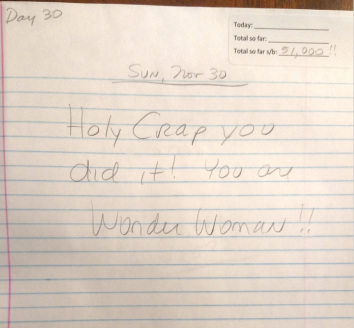 Day 30
Today:
Total so far:
Total so far s/b: 51,000!!
Sun, Nov 30
Holy Crap you
did it! You are
Wonder Woman!!